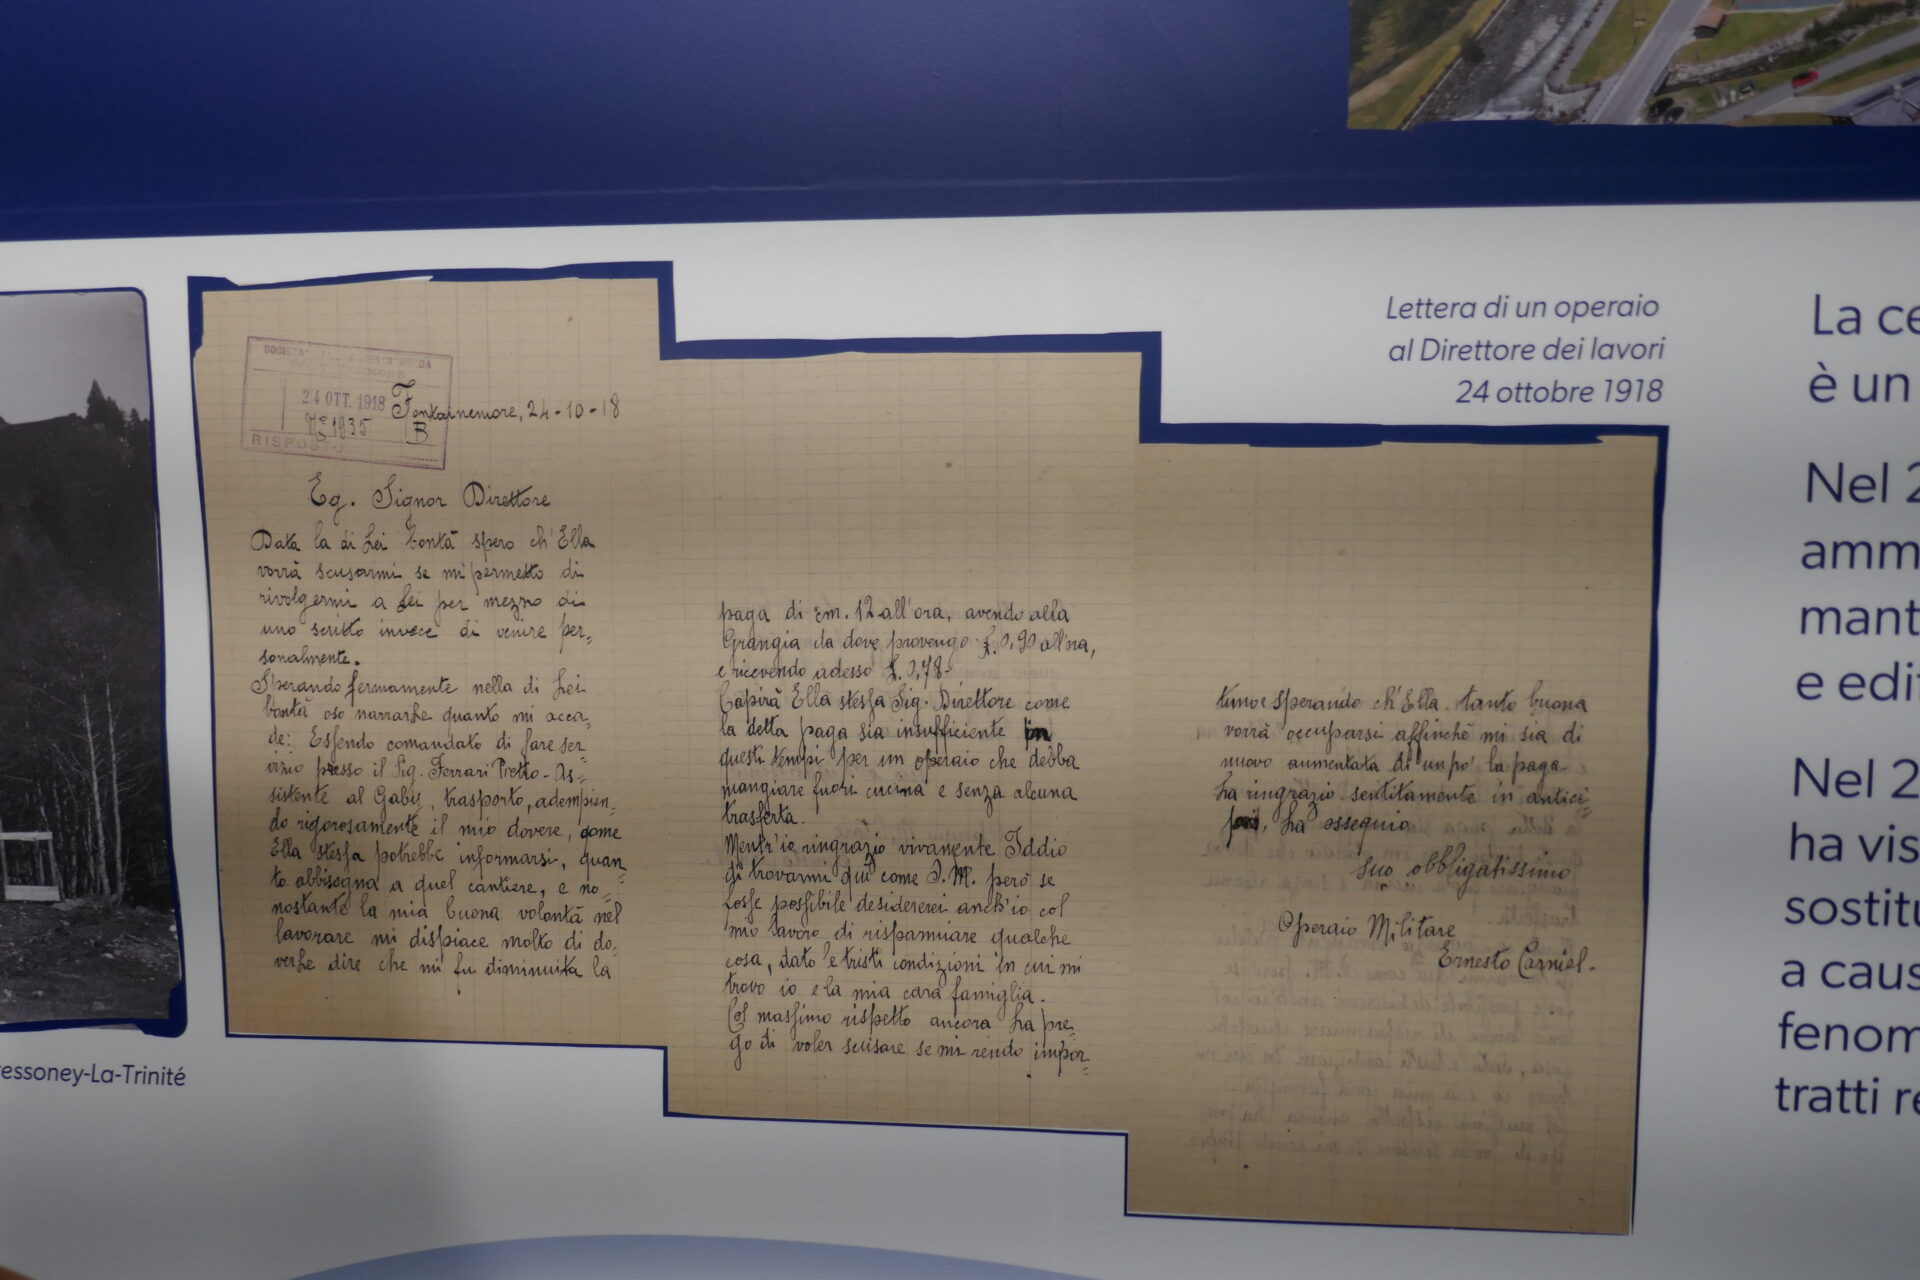 essoney-La-Trinité
24 OTT. 1918
Nº 1935
B
RISPOSTO
Fontainemore, 24-10-18
Eg. Signor Direttore
Data la di Lei bontà spero ch'Ella
vorrà scusarmi se mi permetto di
rivolgermi a Lei per mezzo di
uno scritto invece di venire per=
sonalmente.
Sperando fermamente nella di Lei
bontà oso narrarLe quanto mi acca=
de: Essendo comandato di fare ser=
vizio presso il Sig. Ferrari Pretto-As=
sistente al Gaby, trasporto, adempien=
do rigorosamente il mio dovere, come
Ella stessa potrebbe informarsi, quan=
to abbisogna a quel cantiere, e no=
nostante la mia buona volontà nel
lavorare mi dispiace molto di do=
verLe dire che mi fu diminuita la
paga di cm. 12 all'ora, avendo alla
Grangia da dove provengo £. 0,90 all'ra,
e ricevendo adesso £. 0,78-
Capirà Ella stessa Sig. Direttore come
la detta paga sia insufficiente in
questi tempi per un operaio che debba
mangiare fuori cucina e senza alcuna
trasferta.
Mentr'io ringrazio vivamente Iddio
di trovarmi qui come O.M. però se
fosse possibile desidererei anch'io col
mio lavoro di risparmiare qualche
cosa, dato le tristi condizioni in cui mi
trovo io e la mia cara famiglia.
Col massimo rispetto ancora La pre=
go di voler scusare se mi rendo impor=
tuno e sperando ch'Ella tanto buona
vorrà occuparsi affinché mi sia di
nuovo aumentata di un po' la paga
La ringrazio sentitamente in antici=
La ossequio
suo obbligatissimo
Operaio Militare
Ernesto Carniel.
Lettera di un operaio
al Direttore dei lavori
24 ottobre 1918
La ce
è un
Nel 2
amm
mant
e edif
Nel 2
ha vis
sostitu
a caus
fenom
tratti re